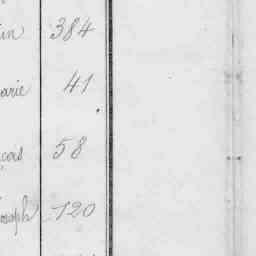 in 384
arie 41
çois 58
oseph 120